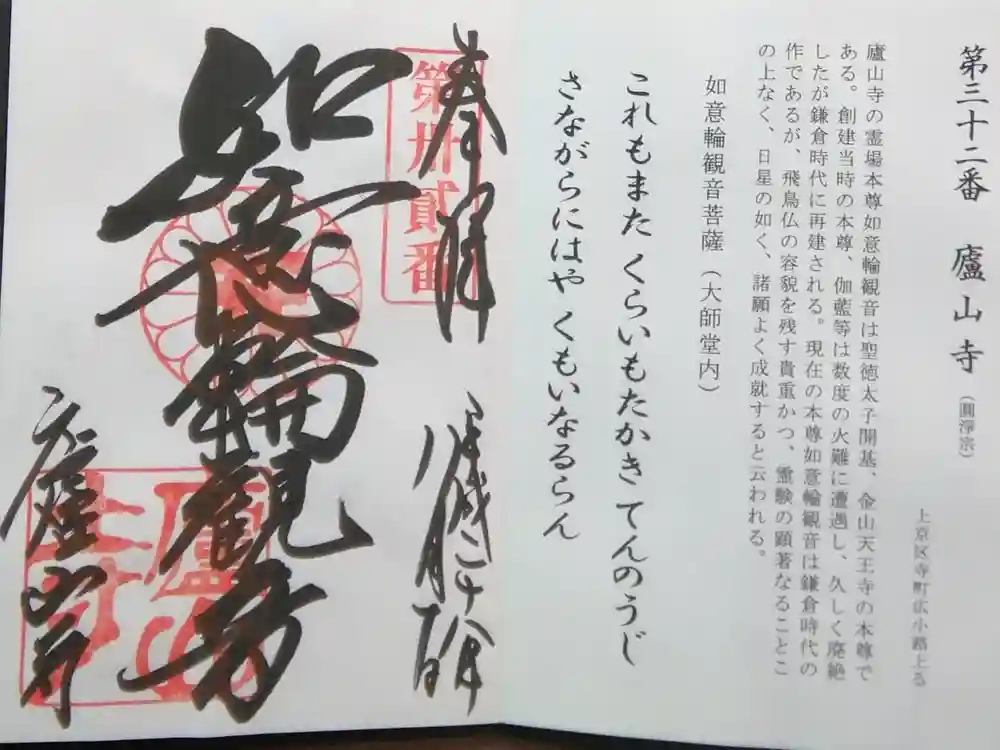 第三十二番 廬山寺（圓淨宗）
上京区寺町広小路上る
廬山寺の霊場本尊如意輪観音は聖徳太子開基、金山天王寺の本尊で
ある。創建当時の本尊、伽藍等は数度の火難に遭遇し、久しく廃絶
したが鎌倉時代に再建される。現在の本尊如意輪観音は鎌倉時代の
作であるが、飛鳥仏の容貌を残す貴重かつ、霊験の顕著なることこ
の上なく、日星の如く、諸願よく成就すると云われる。
如意輪観音菩薩（大師堂内）
これもまた くらいもたかき てんのうじ
さながらにはや くもいなるらん
奉拝
第卅貳番
平成二十
八月
日
如意輪観音
廬山寺
廬山寺